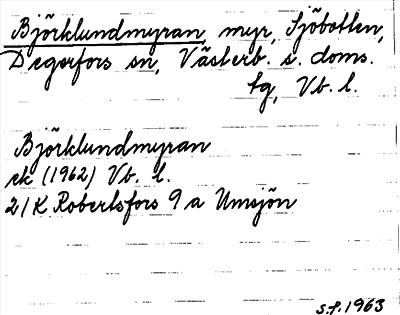 Björklundmyran, myr, Sjöbotten,
Degerfors sn, Västerb. s. doms.
tg, Vb. l.
Björklundmyran
ek (1962) Vb. l.
21K Robertsfors 9a Umsjön
s.f. 1963